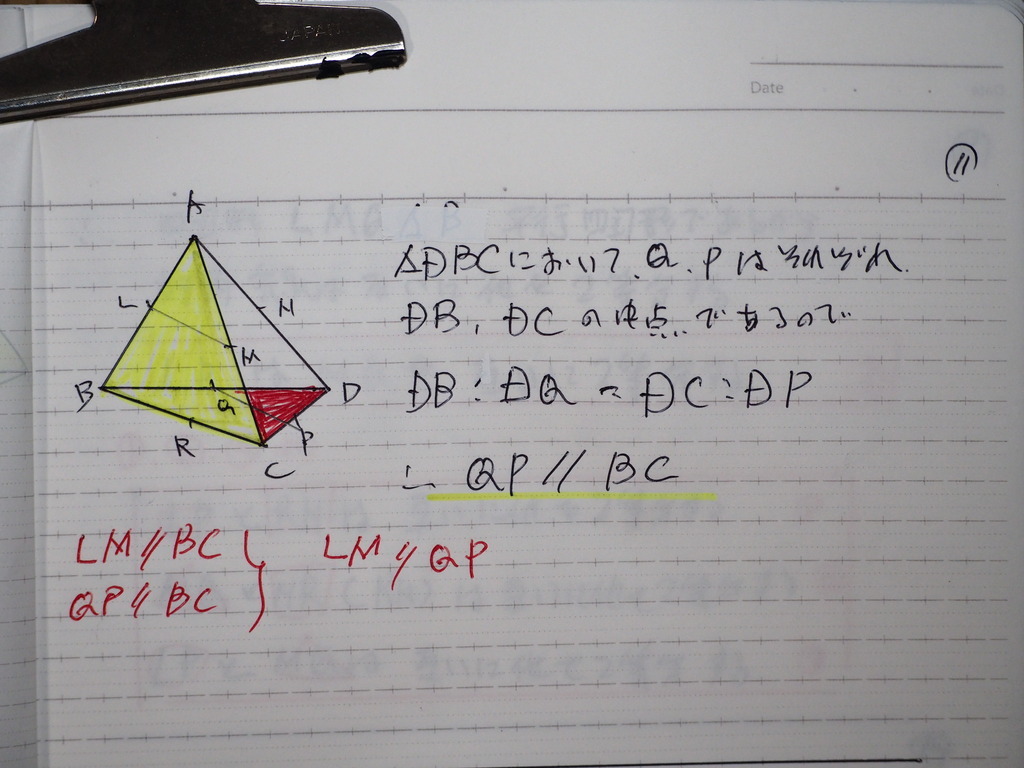 JAPAN
Date
⑪
A
L
N
M
B
Q
D
R
P
C
△DBCにおいて、Q、Pはそれぞれ
DB、DCの中点であるので
DB:DQ=DC:DP
∴ QP//BC
LM//BC
QP//BC
LM//QP